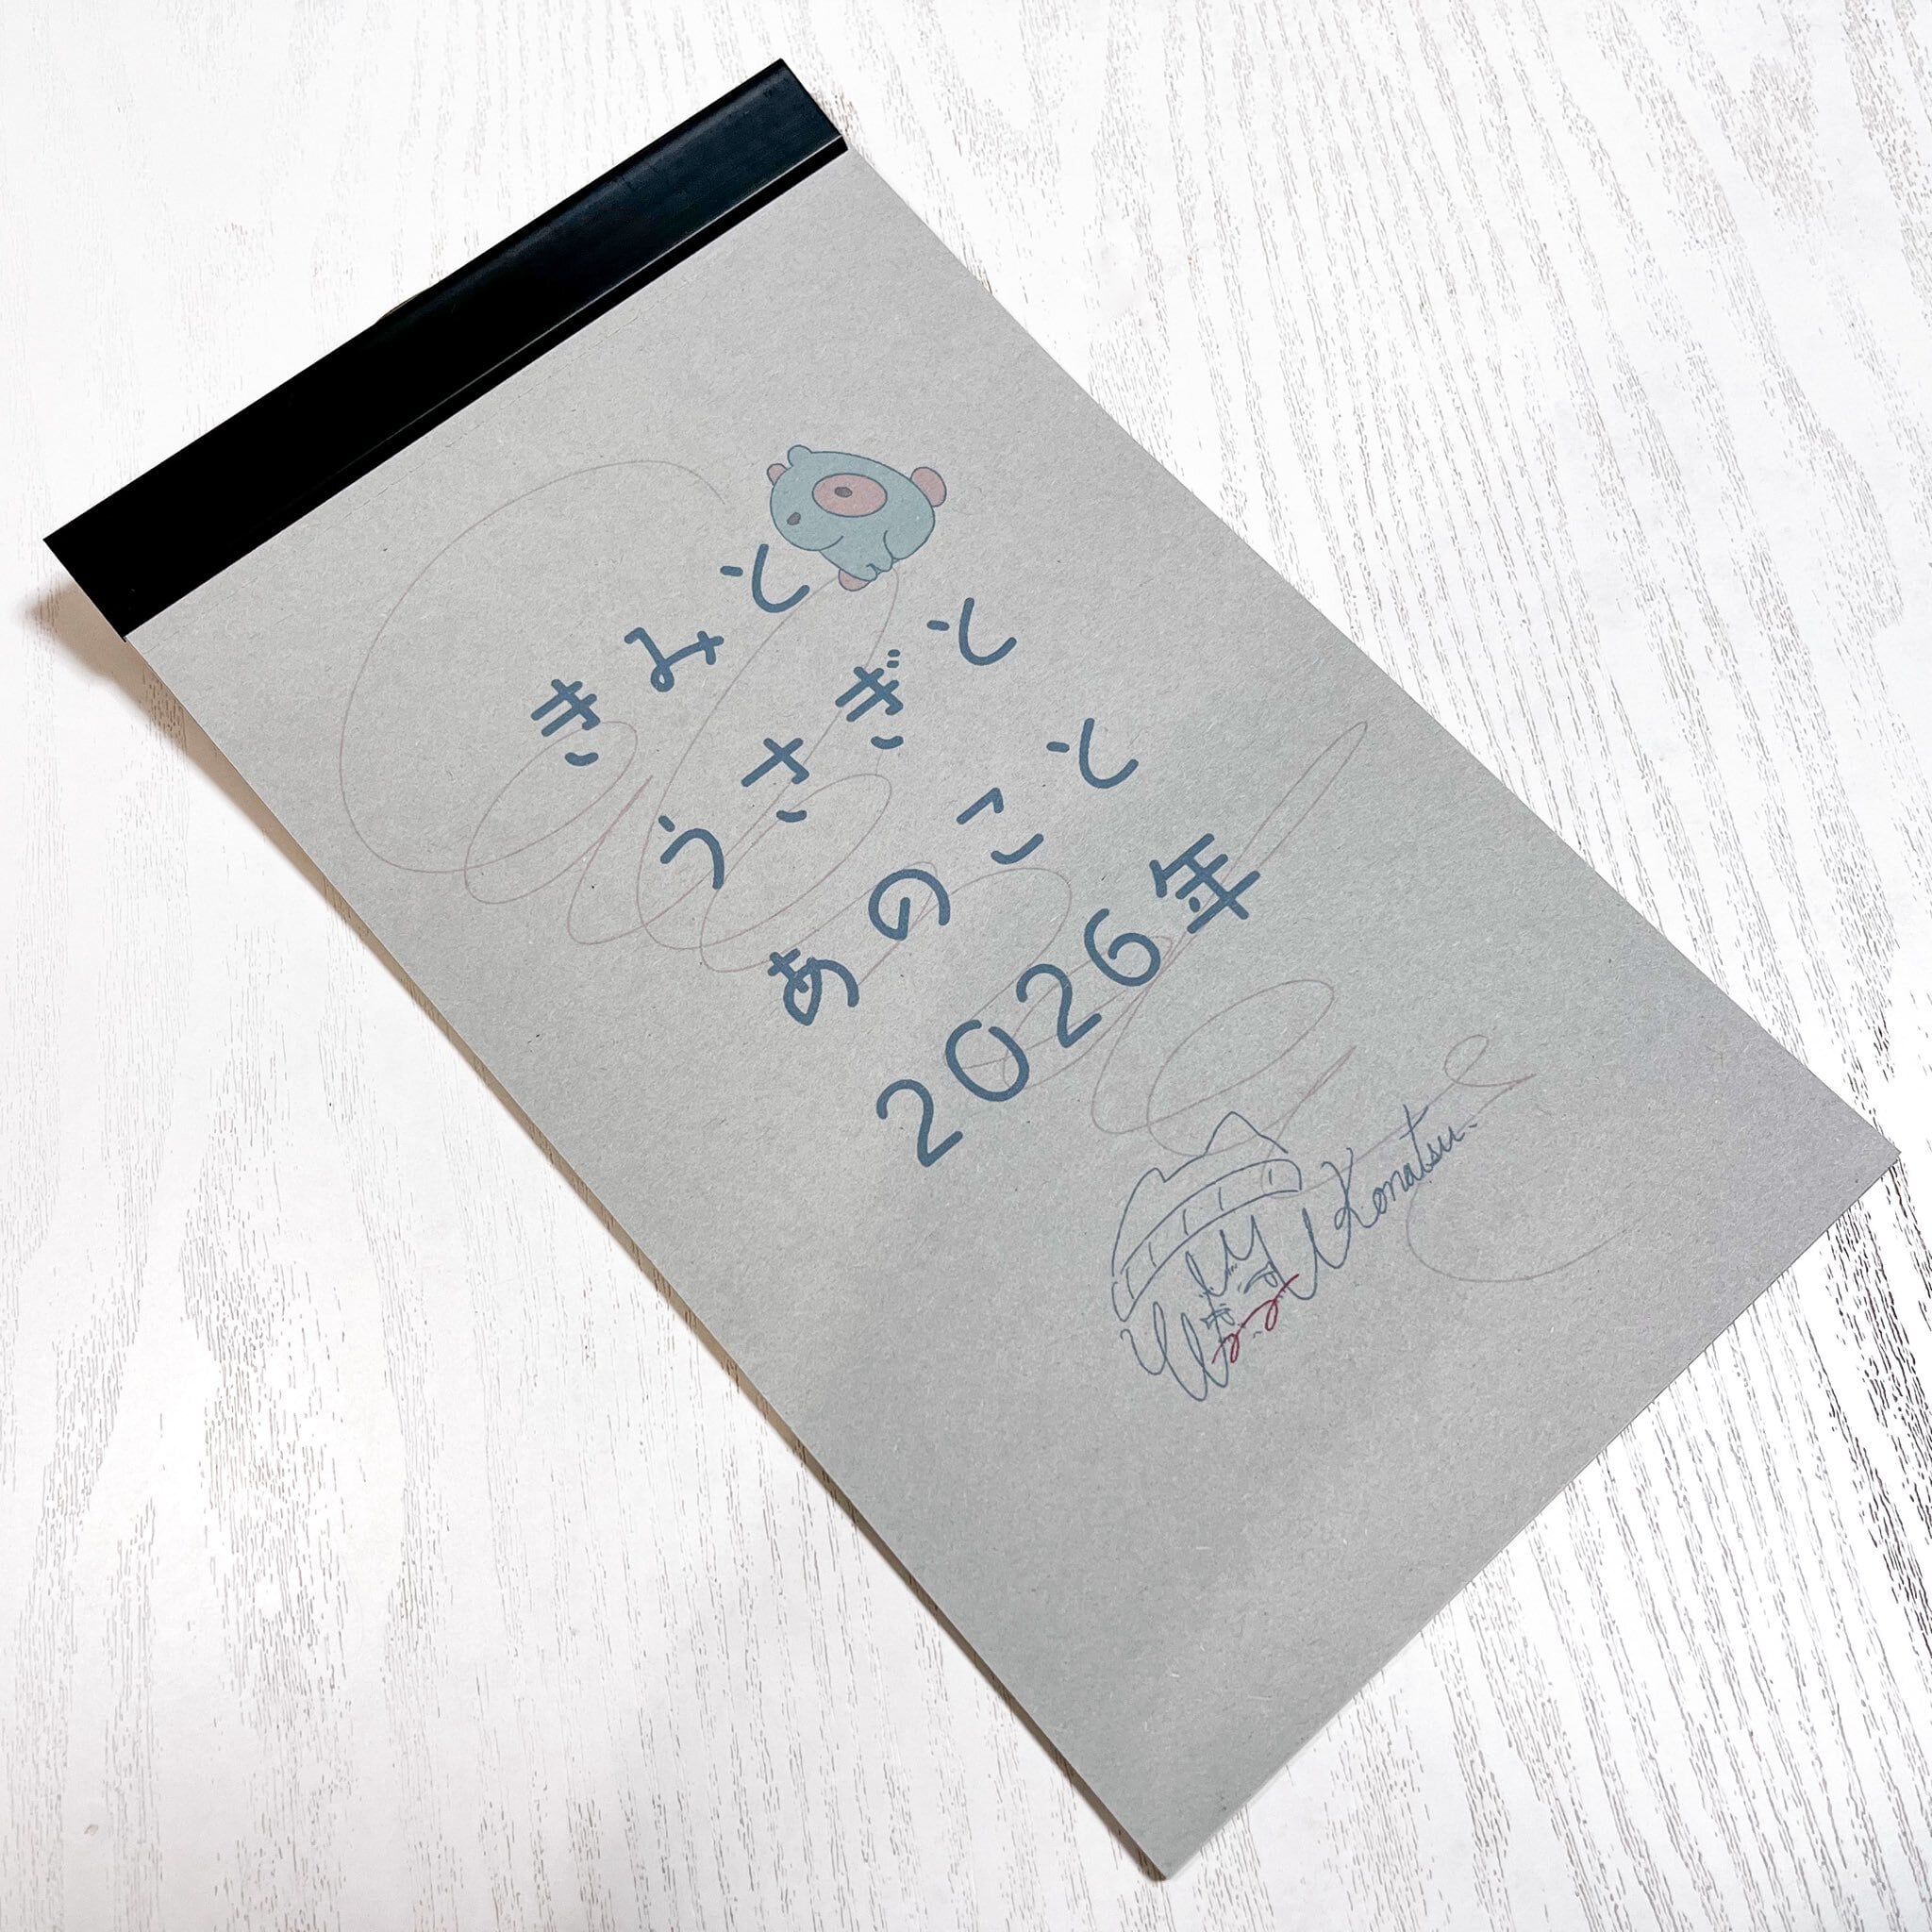 きみと
うさぎと
あのこと
2026年
Konatsu.